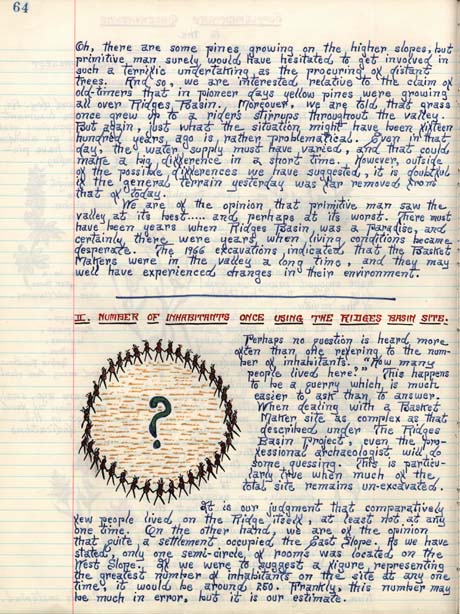 64
Oh, there are some pines growing on the higher slopes, but
primitive man surely would have hesitated to get involved in
such a terrific undertaking as the procuring of distant
trees. And so, we are interested relative to the claim of
old-timers that in pioneer days yellow pines were growing
all over Ridges Basin. Moreover, we are told that grass
once grew up to a rider's stirrups throughout the valley.
But again, just what the situation might have been sixteen
hundred years ago is rather problematical. Even in that
day, the water supply must have varied, and that could
make a big difference in a short time. However, outside
of the possible differences we have suggested, it is doubtful
if the general terrain yesterday was far removed from
that of today.
We are of the opinion that primitive man saw the
valley at its best..... and perhaps at its worst. There must
have been years when Ridges Basin was a paradise, and
certainly there were years when living conditions became
desperate. The 1966 excavations indicated that the Basket
Makers were in the valley a long time, and they may
well have experienced changes in their environment.
II. NUMBER OF INHABITANTS ONCE USING THE RIDGES BASIN SITE.
Perhaps no question is heard more
often than one referring to the num-
ber of inhabitants. "How many
people lived here?" This happens
to be a querry which is much
easier to ask than to answer.
When dealing with a Basket
Maker site as complex as that
described under the Ridges
Basin Project, even the pro-
fessional archaeologist will do
some guessing. This is particu-
larly true when much of the
total site remains un-excavated.
?
It is our judgment that comparatively
few people lived on the Ridge itself, at least not at any
one time. On the other hand, we are of the opinion
that quite a settlement occupied the East Slope. As we have
stated, only one semi-circle of rooms was located on the
West Slope. If we were to suggest a figure representing
the greatest number of inhabitants on the site at any one
time, it would be around 250. Frankly, this number may
be much in error, but it is our estimate.